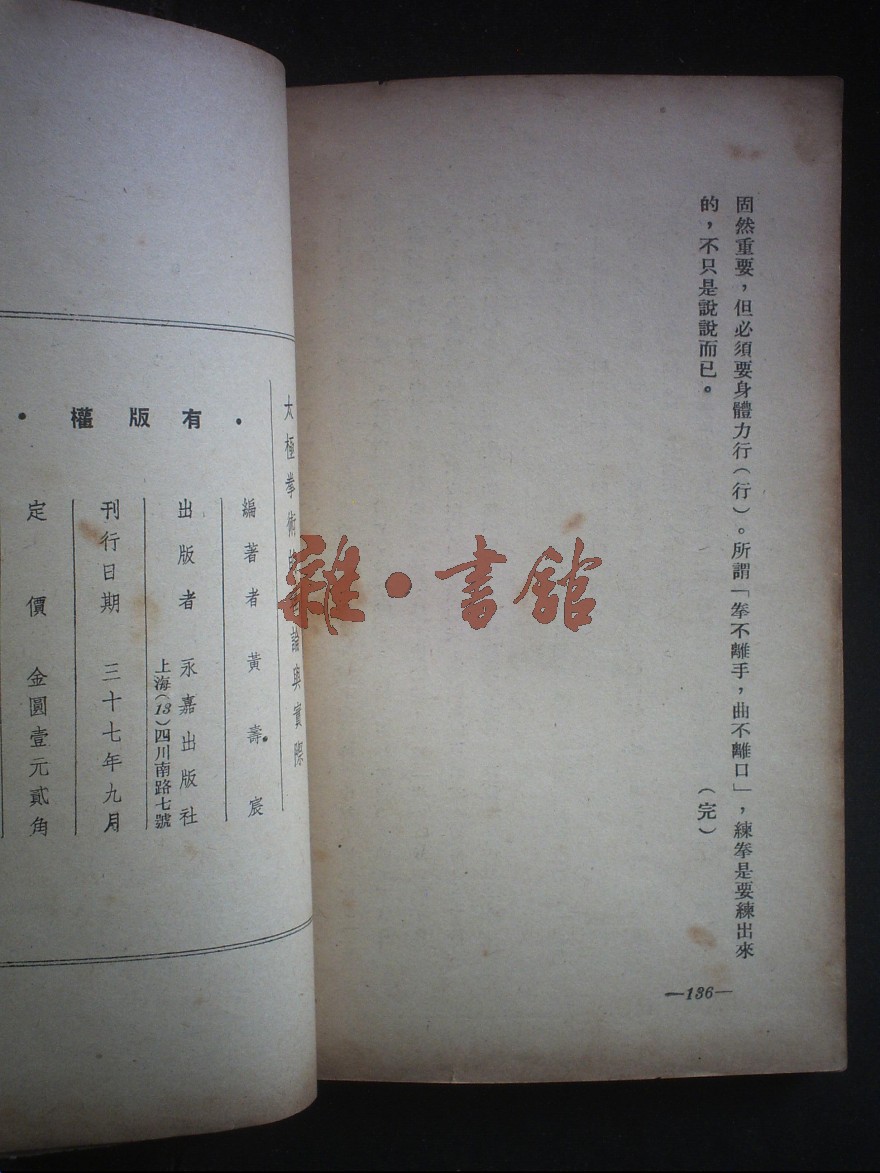 固然重要，但必須要身體力行（行）。所謂「拳不離手，曲不離口」，練拳是要練出來
的，不只是說說而已。
（完）
—136—
太極拳術 論與實際
·有版權·
編著者 黃壽宸
出版者 永嘉出版社
上海(13)四川南路七號
刊行日期 三十七年九月
定價 金圓壹元貳角
雜·書館